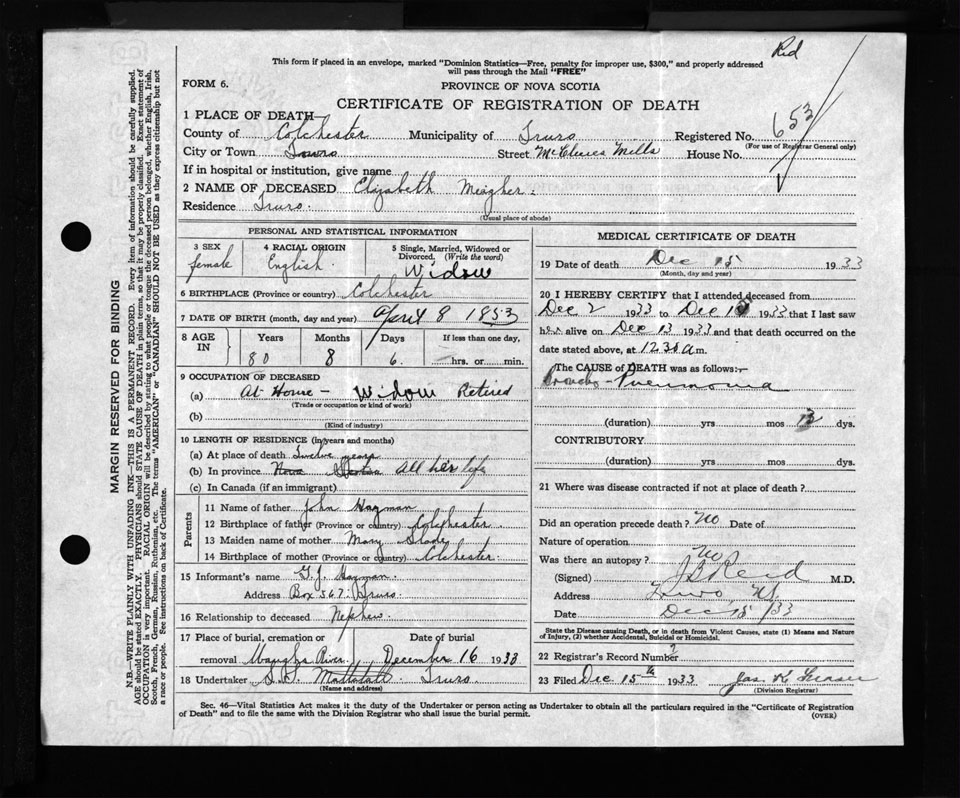 Red
This form if placed in an envelope, marked "Dominion Statistics—Free, penalty for improper use, $300," and properly addressed
will pass through the Mail "FREE"
FORM 6.
PROVINCE OF NOVA SCOTIA
CERTIFICATE OF REGISTRATION OF DEATH
1 PLACE OF DEATH—
County of Colchester Municipality of Truro Registered No. 653
(For use of Registrar General only)
City or Town Truro Street McClures Mills House No.
If in hospital or institution, give name
2 NAME OF DECEASED Elizabeth Meagher.
Residence Truro.
(Usual place of abode)
PERSONAL AND STATISTICAL INFORMATION
3 SEX 4 RACIAL ORIGIN 5 Single, Married, Widowed or
Divorced. (Write the word)
female English. Widow
6 BIRTHPLACE (Province or country) Colchester
7 DATE OF BIRTH (month, day and year) April 8 1853
8 AGE IN Years Months Days If less than one day,
80 8 6. hrs. or min.
9 OCCUPATION OF DECEASED
(a) At House — Widow Retired
(Trade or occupation or kind of work)
(b)
(Kind of industry)
10 LENGTH OF RESIDENCE (in years and months)
(a) At place of death Twelve years
(b) In province Nova Scotia All her life
(c) In Canada (if an immigrant)
Parents
11 Name of father John Hayman
12 Birthplace of father (Province or country) Colchester.
13 Maiden name of mother Mary Slade
14 Birthplace of mother (Province or country) Colchester.
15 Informant's name G.J. Hayman.
Address Box 567. Truro.
16 Relationship to deceased Nephew.
17 Place of burial, cremation or Date of burial
removal Waughs River. December 16 1933
18 Undertaker Mattatall Truro.
(Name and address)
MEDICAL CERTIFICATE OF DEATH
19 Date of death Dec 15 1933
(Month, day and year)
20 I HEREBY CERTIFY that I attended deceased from
Dec 2 1933 to Dec 1933 that I last saw
her alive on Dec 13 1933 and that death occurred on
date stated above, at 12 30 a m.
The CAUSE of DEATH was as follows:—
Broncho-Pneumonia
(duration) yrs mos dys.
CONTRIBUTORY
(duration) yrs mos dys.
21 Where was disease contracted if not at place of death?
Did an operation precede death? No Date of
Nature of operation
Was there an autopsy? No
(Signed) Reid M.D.
Address Truro NS
Date Dec 15 /33
State the Disease causing Death, or in death from Violent Causes, state (1) Means and Nature
of Injury, (2) whether Accidental, Suicidal or Homicidal.
22 Registrar's Record Number
23 Filed Dec 15th 1933 Jas K Fraser
(Division Registrar)
Sec. 46—Vital Statistics Act makes it the duty of the Undertaker or person acting as Undertaker to obtain all the particulars required in the "Certificate of Registration
of Death" and to file the same with the Division Registrar who shall issue the burial permit.
(OVER)
MARGIN RESERVED FOR BINDING
N.B.—WRITE PLAINLY WITH UNFADING INK—THIS IS A PERMANENT RECORD. Every item of information should be carefully supplied.
AGE should be stated EXACTLY. PHYSICIANS should STATE CAUSE OF DEATH in plain terms, so that it may be properly classified. Exact statement of
OCCUPATION is very important. RACIAL ORIGIN will be described by stating to what people or tongue the deceased person belonged, whether English, Irish,
Scotch, French, German, Russian, Ruthenian, etc. The terms "AMERICAN" or "CANADIAN" SHOULD NOT BE USED as they express citizenship but not
a race or people. See instructions on back of Certificate.